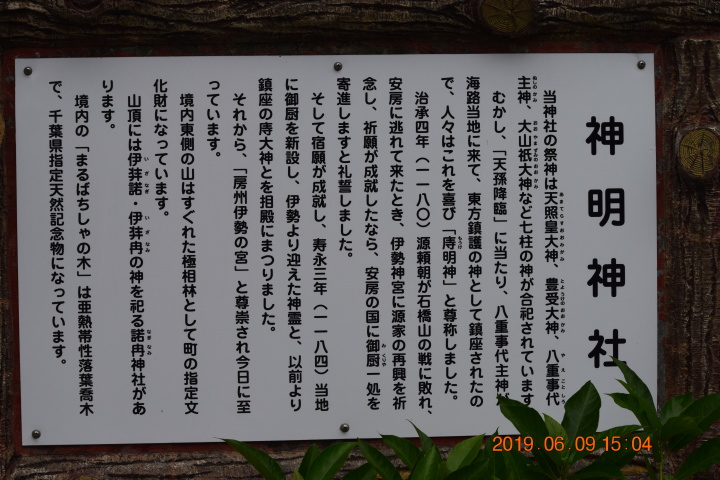 神明神社
当神社の祭神は天照皇大神、豊受大神、八重事代
主神、大山祇大神など七柱の神が合祀されています
むかし、「天孫降臨」に当たり、八重事代主神が
海路当地に来て、東方鎮護の神として鎮座されたの
で、人々はこれを喜び「庤明神」と尊称しました。
治承四年（一一八〇）源頼朝が石橋山の戦に敗れ、
安房に逃れて来たとき、伊勢神宮に源家の再興を祈
念し、祈願が成就したなら、安房の国に御厨一処を
寄進しますと礼誓しました。
そして宿願が成就し、寿永三年（一一八四）当地
に御厨を新設し、伊勢より迎えた神霊と、以前より
鎮座の庤大神とを相殿にまつりました。
それから、「房州伊勢の宮」と尊崇され今日に至
っています。
境内東側の山はすぐれた極相林として町の指定文
化財になっています。
山頂には伊弉諾・伊弉冉の神を祀る諾冉神社があ
ります。
境内の「まるばちしゃの木」は亜熱帯性落葉喬木
で、千葉県指定天然記念物になっています。
2019.06.09 15:04